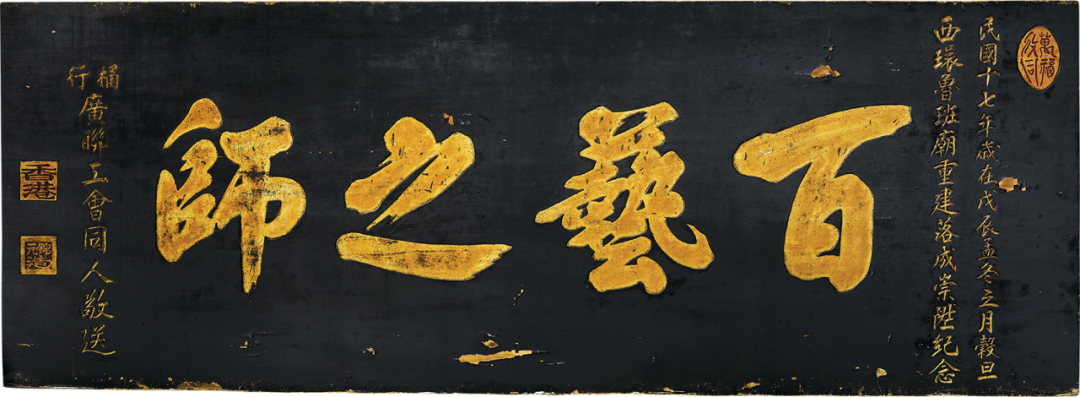 萬福攸同
民國十七年歲在戊辰孟冬之月穀旦
西環魯班廟重建落成崇陞紀念
百藝之師
桶行
廣聯工會同人敬送
香港